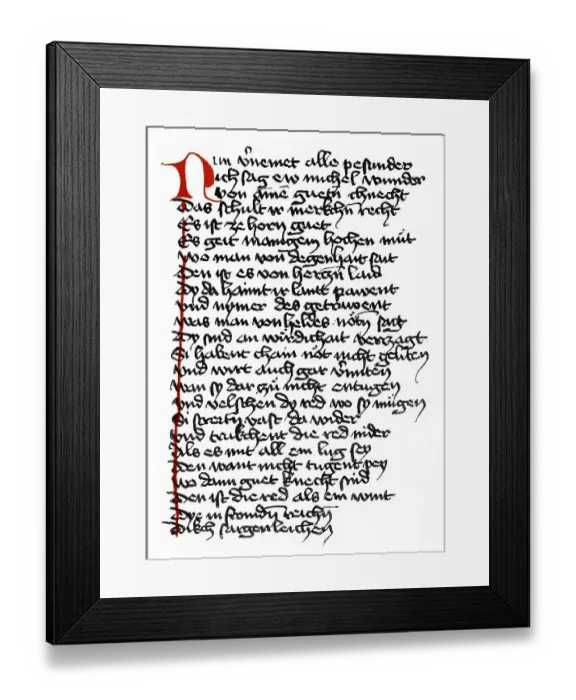 Nun v̂nemet alle pesunder
ich sag ew michel wunder
von ame guetn chnecht
Das schult ir merkchn̄ recht
Es ist ze horn guet
Es geit manigem hochen mut
wo man von degenhait sait
Den ist es von herczn̄ laid
Dy da haimt ir lantt pawent
vnd nymer des getrowent
was man von heldes notn̄ sagt
Dy sind an wirdichait verczagt
Si habent chain not nicht geliten
vnd wirt auch gar v̂miten
wan sy dar czu nicht entugen
vnd velschen dy red wo sy mugen
Si strertn̄ vast da wider
vnd trukchent die red nider
als es mit all ein lug sey
Den want nicht tugent pey
wo dann guet knecht sind
Den ist die red als ein wint
Dye in fromdn̄ reichn̄
Dikch sargenleichen